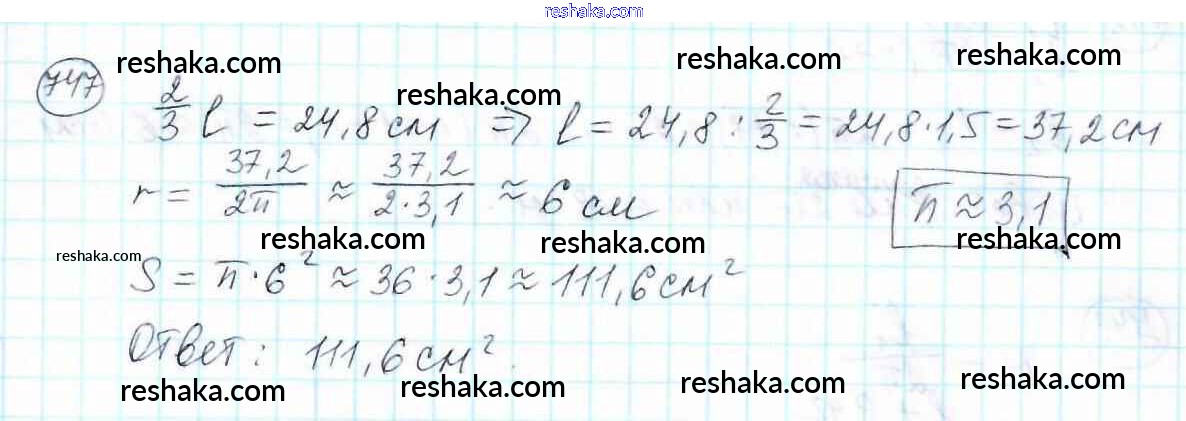 reshaka.com
reshaka.com reshaka.com reshaka.com
747
reshaka.com
2/3 l = 24,8 см => l = 24,8 : 2/3 = 24,8 · 1,5 = 37,2 см
r = 37,2/2π ≈ 37,2/2·3,1 ≈ 6 см π ≈ 3,1
reshaka.com reshaka.com reshaka.com reshaka.com
S = π · 6² ≈ 36 · 3,1 ≈ 111,6 см²
Ответ: 111,6 см².
reshaka.com reshaka.com reshaka.com reshaka.com